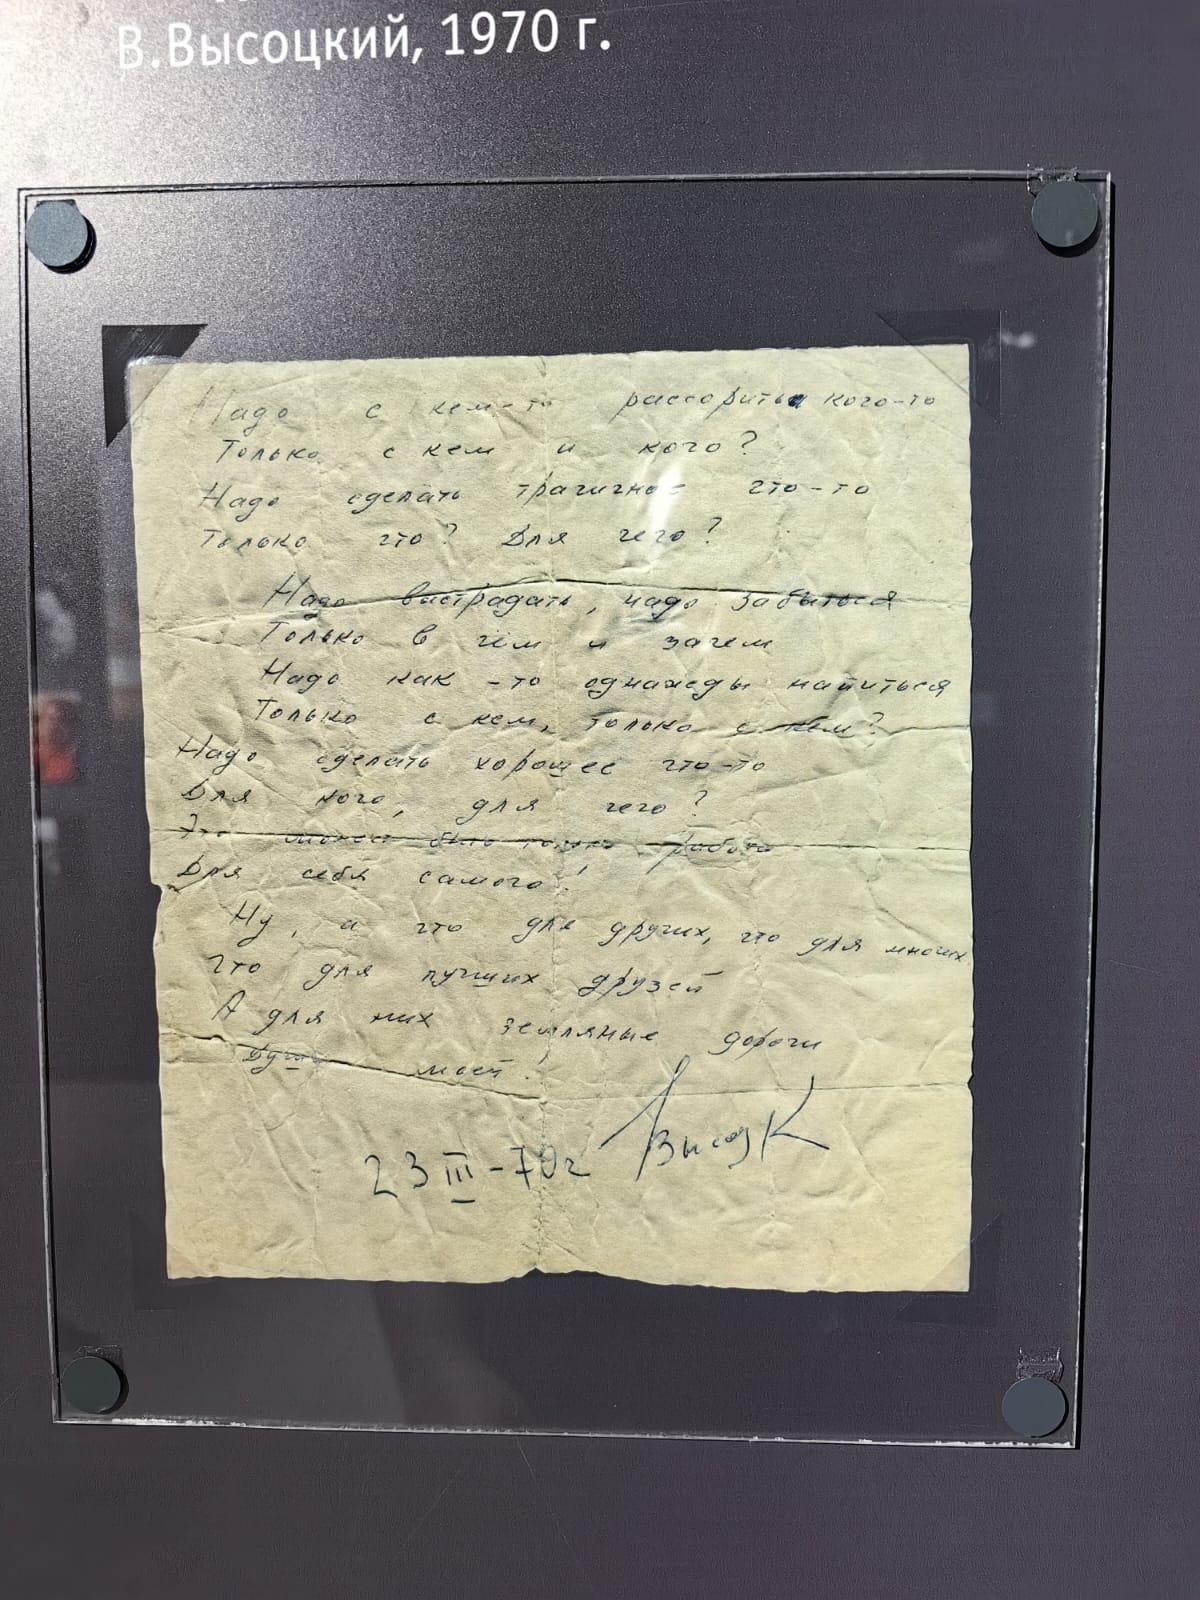 В.Высоцкий, 1970 г.
Надо с кем-то рассорить кого-то
Только с кем и кого?
Надо сделать трагичное что-то
Только что? Для чего?
Надо выстрадать, надо забыться
Только в чём и зачем
Надо как-то однажды напиться
Только с кем, только с кем?
Надо сделать хорошее что-то
Для кого, для чего?
Это может быть только работа
Для себя самого!
Ну, а что для других, что для многих
Что для лучших друзей
А для них земляные дороги
Души моей!
23 III-70г Высоц